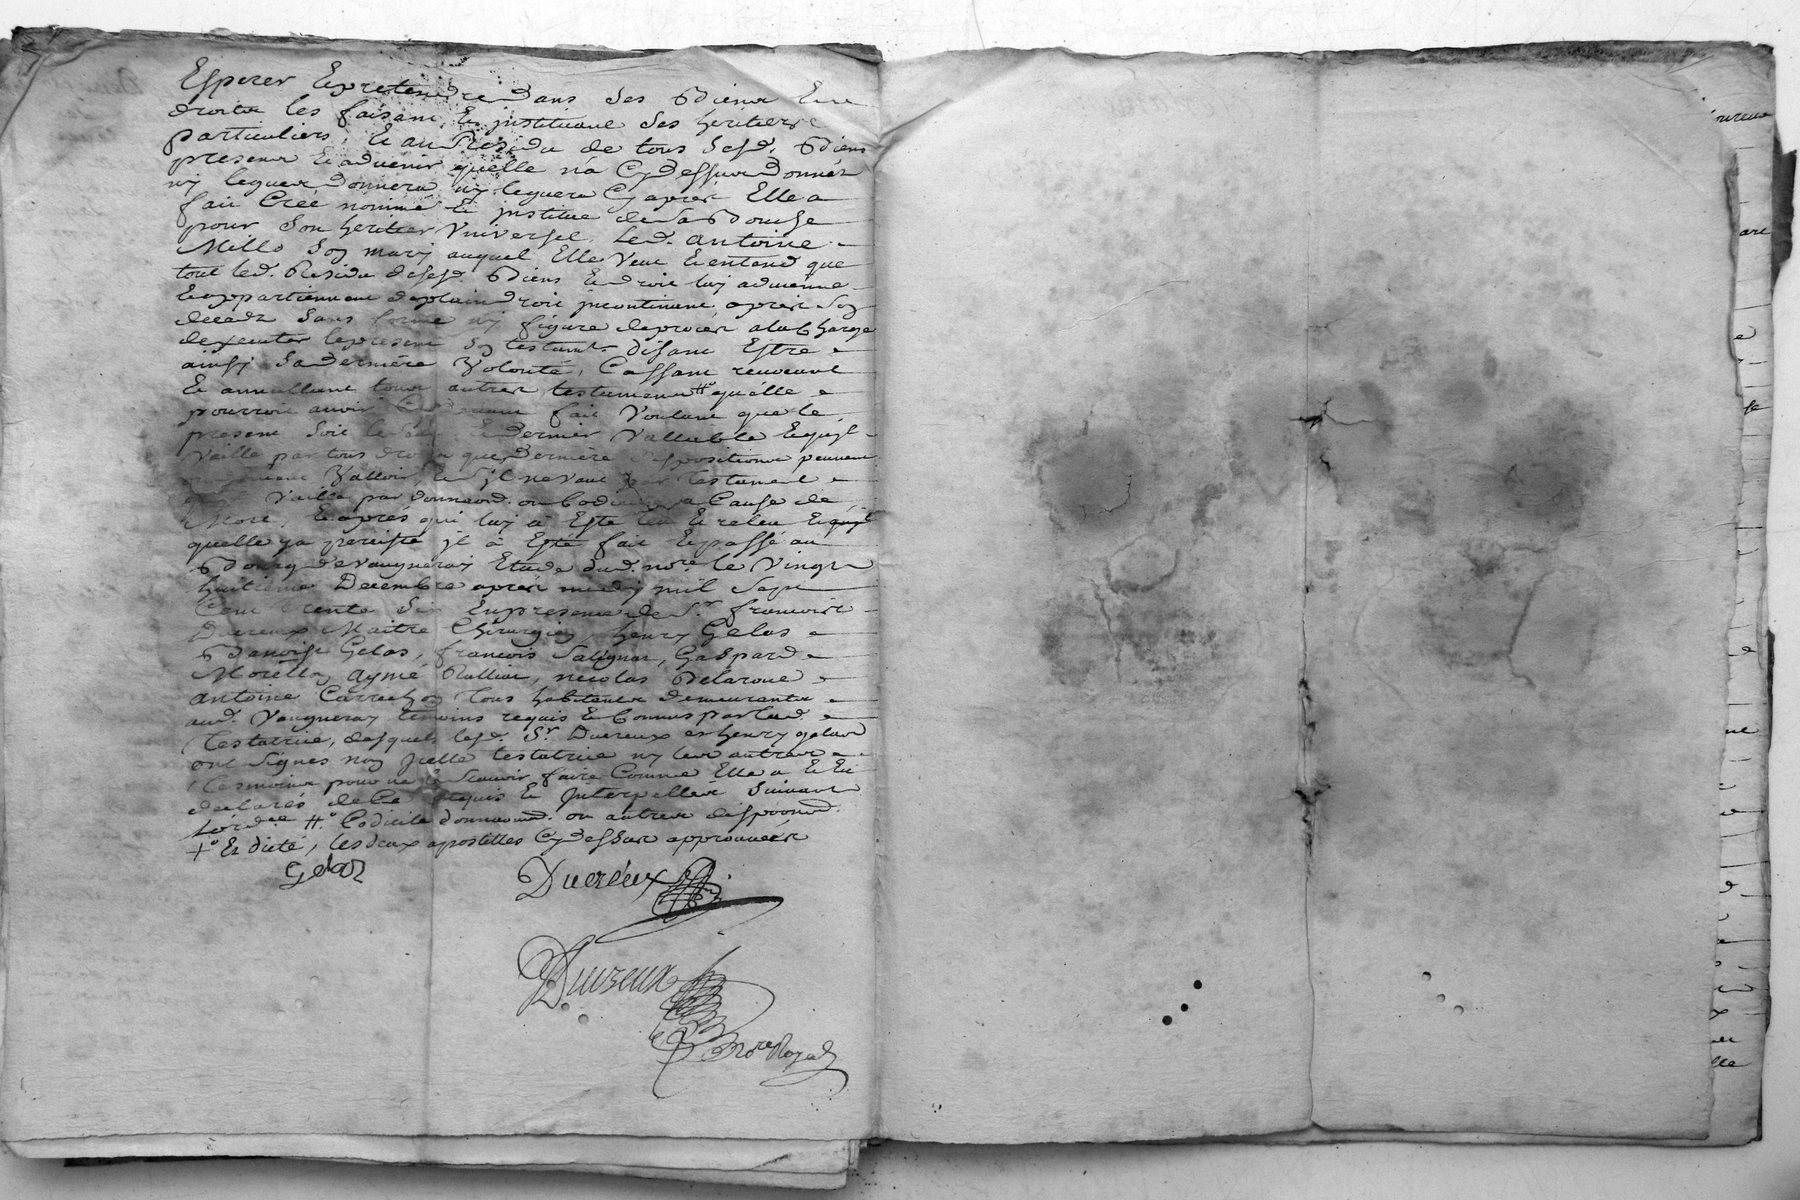 Esperer Et pretendre dans ses Biens Et
droits les faisant Et jnstituant ses heritiers
particuliers, Et au Residu de tous sesd. Biens
presens Et advenir quelle n'a Cy dessus donnés
ny leguer donnera ny leguera Cy apres Elle a
fait Créé nommé Et jnstitue de Sa Bouche
pour Son heritier Vniversel, Led. antoine
Mille Son mary auquel Elle Veut Et entend que
tout led. Residu desesd. Biens Et droit luy advienne
Et appartiennent deplain droit jncontinent apres Son
deceds Sans forme ny figure deproces ala Charge
dexecuter lepresent Son testamt. disant Estre
ainsy Sa derniere Volonté, Cassant revocant
Et annullant tous autres testaments #° quélle
pourroit avoir Cy devant fait Voulant que le
present Soit le Seul Et dernier Vallable Et quil
Vaille par tous droits que derniere dispositions peuvent
Valloir, Et S'il ne Vaut par testament
Vaille par donnaon. ou Codicille a Cause de
Mort, Et aprés qui luy a Esté leu Et releu
quelle ya percisté jl a Esté fait Et passé au
Bourg de Vaugneray Etude dud. nore. le Vingt
huitieme Decembre apres midy mil Sept
Cent trente Six Enpresence de Sr. francoist
Ducreux Maitre Chirurgien, henry Gelas
Benoist Gelas, francois Salignat, Gaspard
Morellon, aymé Rallion, nicolas Delaroue
antoine Carrechon tous habitants demeurants
aud. Vaugneray témoins requis Et Connus par lad.
testatrice, desquels lesd. Sr. Ducreux et henry gelas
ont Signés non jcelle testatrice ny les autres
tesmoins pour ne le Scavoir faire Comme Elle a Et Ere
declarés de Ce requis Et Interpellés Suivant
Lord.ce #° Codicile donnaond. ou autres disposond.
+° Et dicté, les deux apostilles Cy dessus approuvées
Gelas
Ducréux
Ducreux
Nore Royal